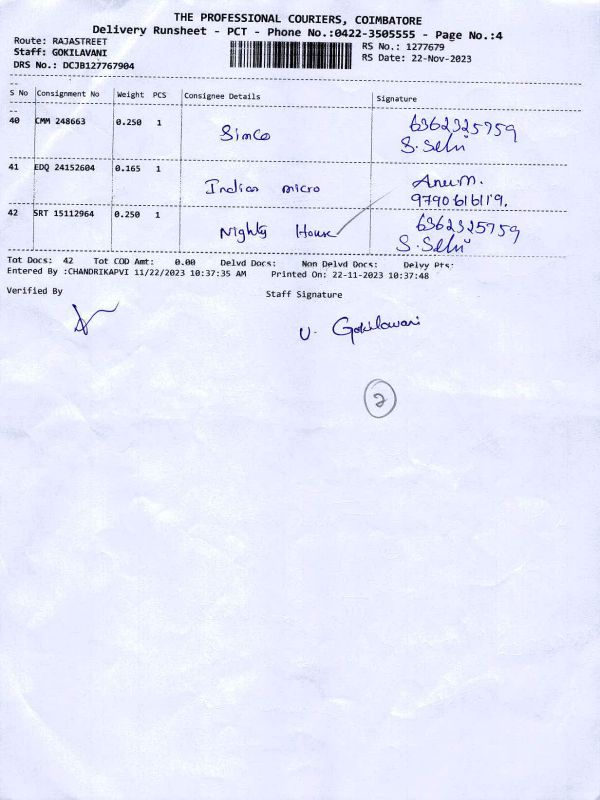 THE PROFESSIONAL COURIERS, COIMBATORE
Delivery Runsheet - PCT - Phone No.:0422-3505555 - Page No.:4
Route: RAJASTREET
RS No.: 1277679
Staff: GOKILAVANI
RS Date: 22-Nov-2023
DRS No.: DCJB127767904
S No Consignment No Weight PCS Consignee Details Signature
40 CMM 248663 0.250 1 Simco 6362325759
S. Selvi
41 EDQ 24152604 0.165 1 Indian micro
9790616119.
42 SRT 15112964 0.250 1 Nighty House 6362325759
S. Selvi
Tot Docs: 42 Tot COD Amt: 0.00 Delvd Docs: Non Delvd Docs: Delvy Pts:
Entered By :CHANDRIKAPVI 11/22/2023 10:37:35 AM Printed On: 22-11-2023 10:37:48
Verified By Staff Signature
U. Gokilavani
2